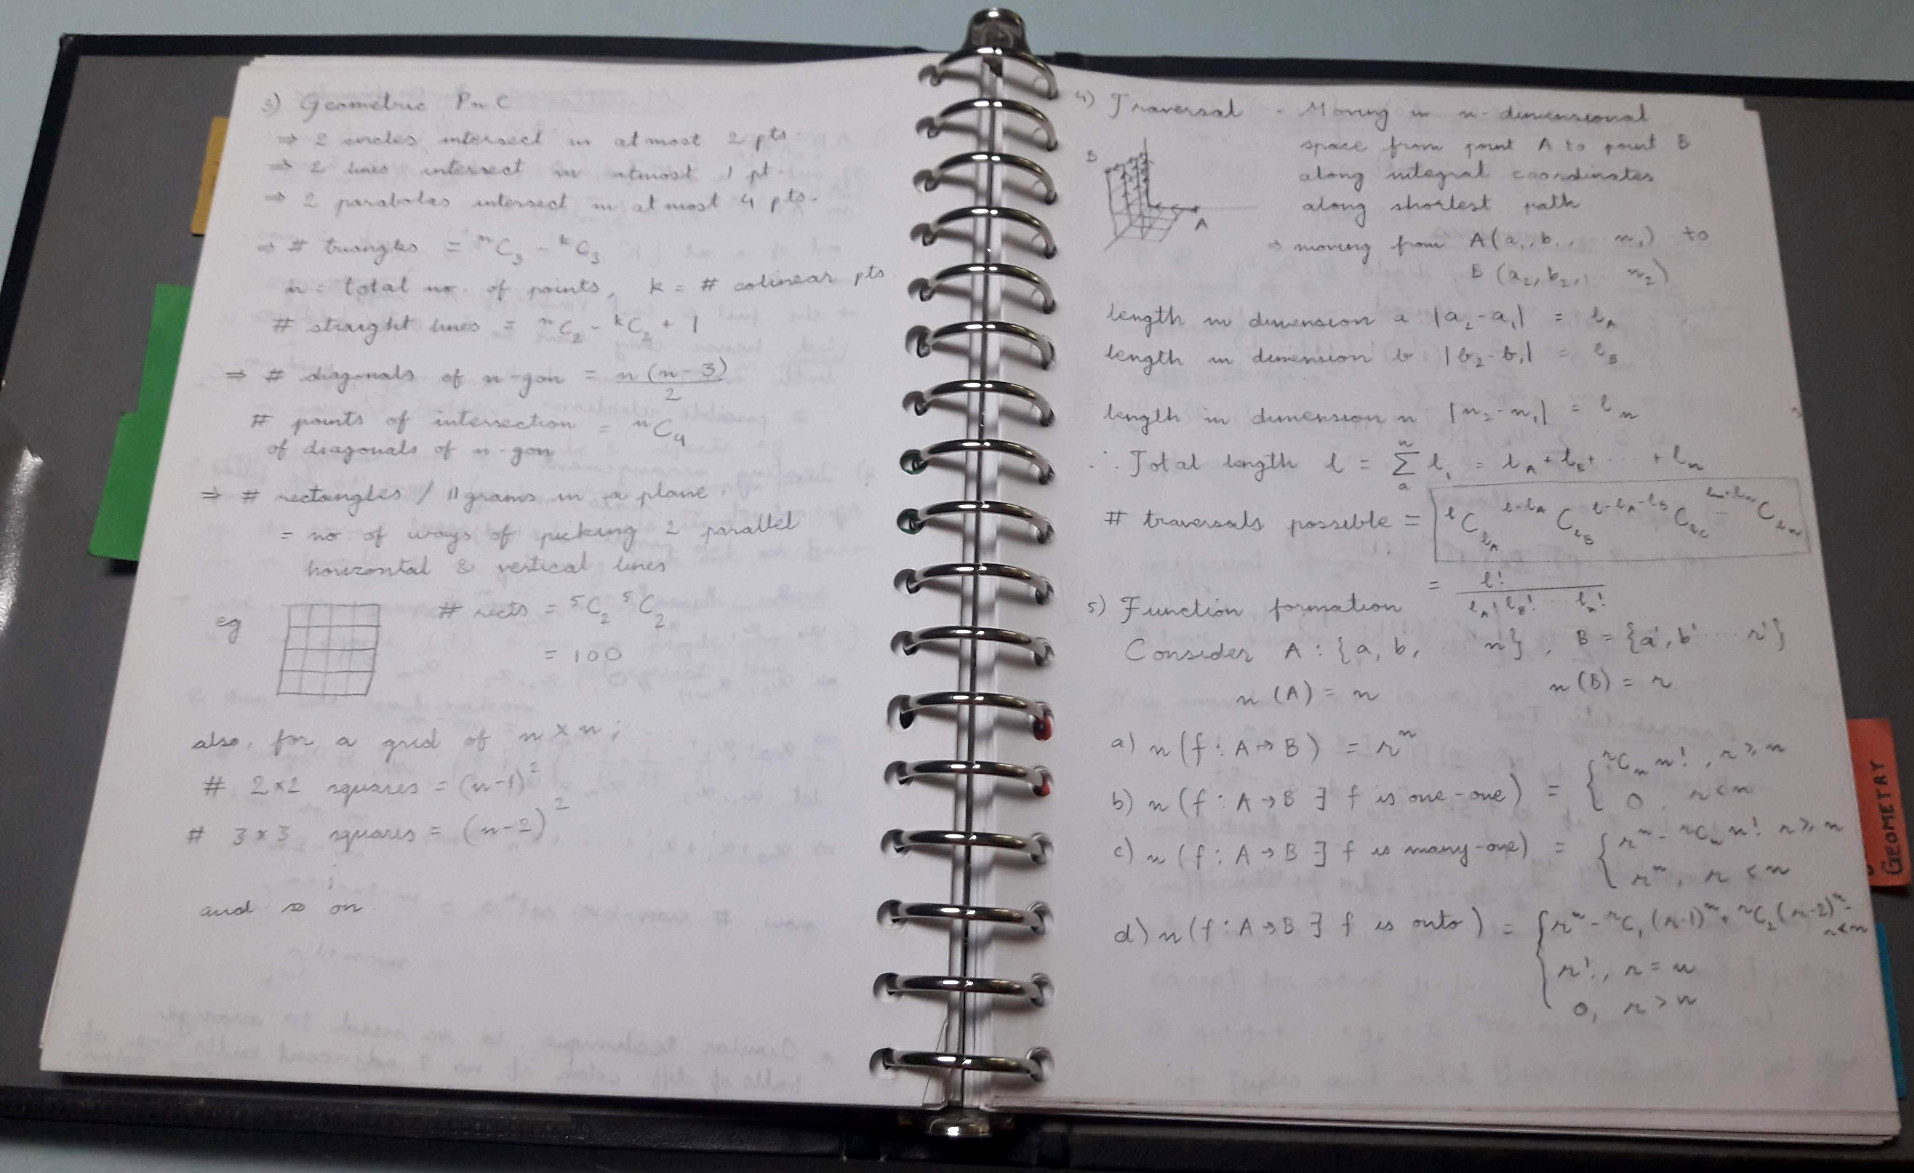 3) Geometric PnC
⇒ 2 circles intersect in atmost 2 pts.
⇒ 2 lines intersect in atmost 1 pt.
⇒ 2 parabolas intersect in atmost 4 pts.
⇒ # triangles = ⁿC₃ - ᵏC₃
n = total no. of points, k = # colinear pts.
# straight lines = ⁿC₂ - ᵏC₂ + 1
⇒ # diagonals of n-gon = n(n-3)/2
# points of intersection = ⁿC₄
of diagonals of n-gon
⇒ # rectangles / ||grams in a plane.
= no. of ways of picking 2 parallel
horizontal & vertical lines
eg # rects = ⁵C₂ ⁵C₂
= 100
also, for a grid of n × n;
# 2×2 squares = (n-1)²
# 3×3 squares = (n-2)²
⋮
and so on.
4) Traversal - Moving in n-dimensional
space from point A to point B
along integral coordinates
along shortest path
B
A
⇒ moving from A(a₁, b₁, ... n₁) to
B(a₂, b₂, ... n₂)
length in dimension a: |a₂-a₁| = l_A
length in dimension b: |b₂-b₁| = l_B
length in dimension n: |n₂-n₁| = l_n
∴ Total length l = Σ_a^n l_i = l_A + l_B + ... + l_n
# traversals possible =
= l! / l_A! l_B! ... l_n!
5) Function formation
Consider A : {a, b, n}, B = {a', b' ... r'}
n(A) = n n(B) = r
a) n(f : A→B) = rⁿ
b) n(f : A→B ∃ f is one-one) = { ʳCₙ n!, r ≥ n
0 r<n
c) n(f : A→B ∃ f is many-one) = { rⁿ - ʳCₙ n! r ≥ n
rⁿ, r < n
d) n(f : A→B ∃ f is onto) = { rⁿ - ʳC₁(r-1)ⁿ + ʳC₂(r-2)ⁿ - r<n
r!, r = n
0, r > n
GEOMETRY